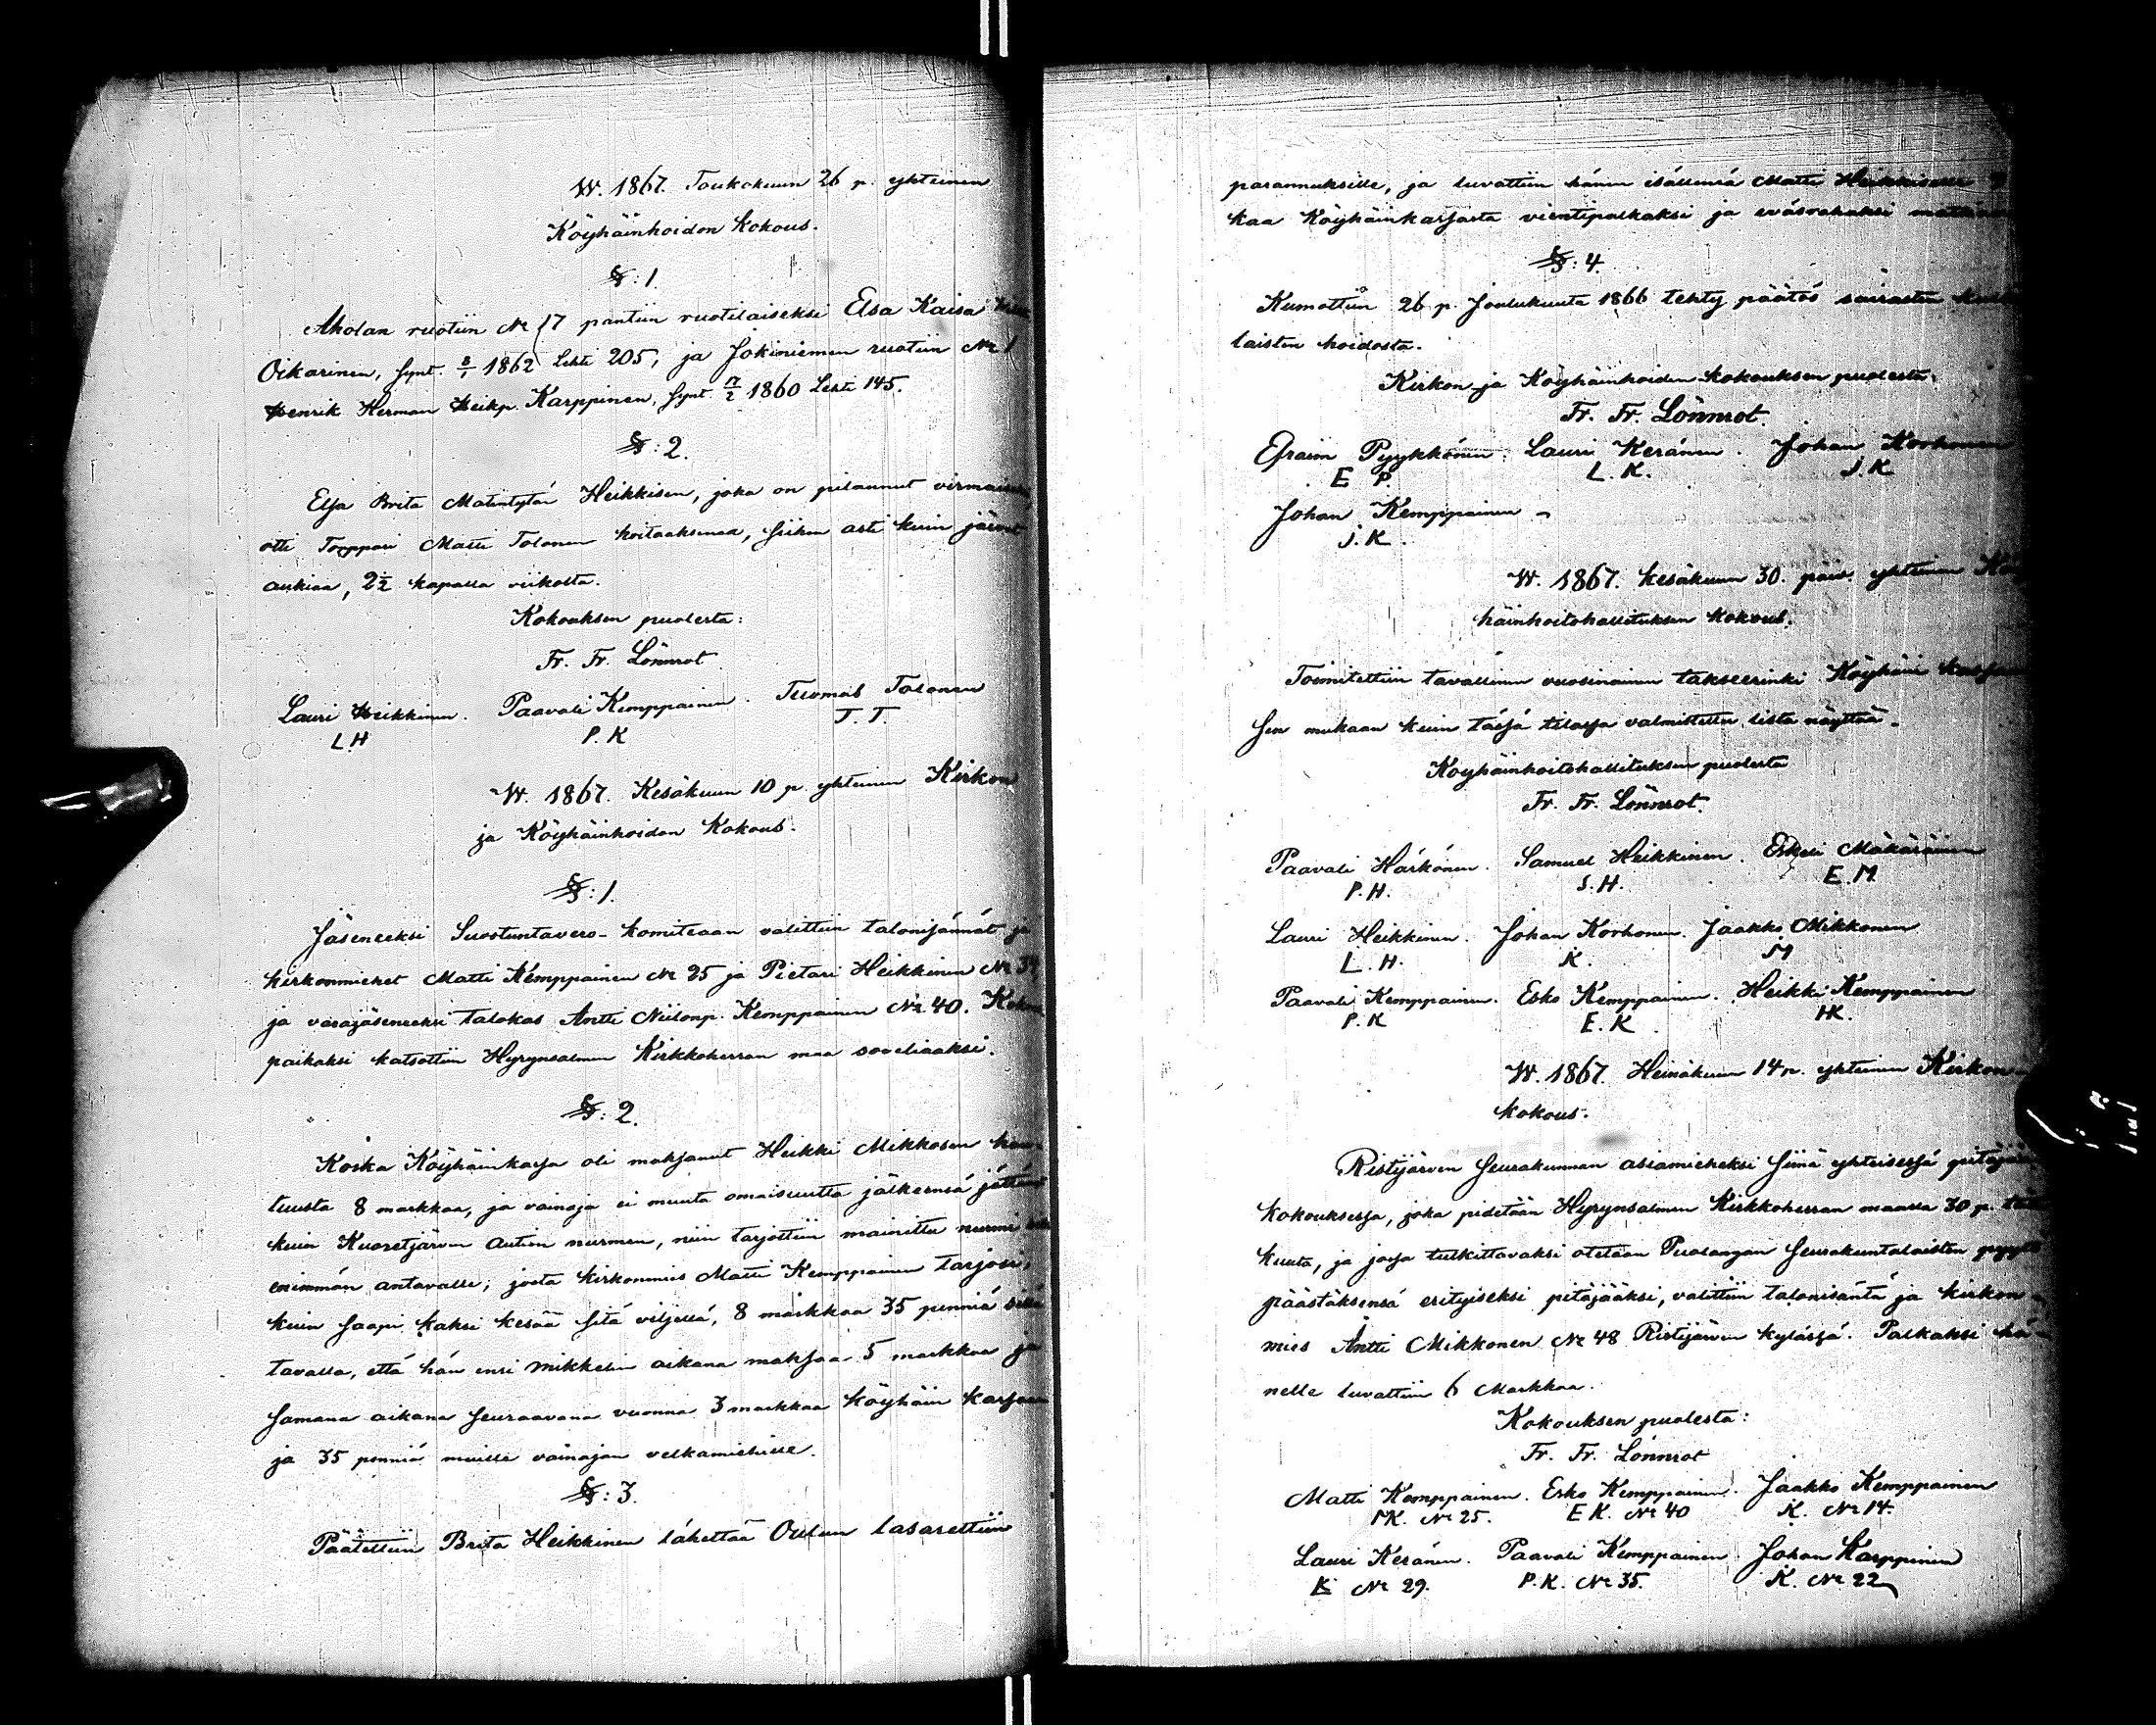 W. 1867. Toukokuun 26 p. yhteinen
Köyhäinhoidon Kokous.
§: 1.
Aholan ruotiin No 17 pantiin ruotilaiseksi Elsa Kaisa
Oikarinen, synt. 8/1 1862 Lehti 205, ja Jokiniemen ruotiin No 1
Henrik Herman Heikp. Karppinen, synt. 17/2 1860 Lehti 145.
§: 2.
Elsa Brita Matintytär Heikkisen, joka on pilannut
otti Torppari Matti Tolonen hoitaaksensa, siihen asti kuin järvet
aukiaa, 2½ kapalla viikolta.
Kokouksen puolesta:
Fr. Fr. Lönnrot
Lauri Heikkinen. Paavali Kemppainen. Tuomas Tolonen
L.H P.K T.T.
W. 1867. Kesäkuun 10 p. yhteinen Kirkon
ja Köyhäinhoidon Kokous.
§: 1.
Jäseneeksi Suostuntavero-komiteaan valittiin talonisännät ja
kirkonmiehet Matti Kemppainen No 25 ja Pietari Heikkinen No
ja varajäseneeksi talokas Antti Niilonp. Kemppainen No 40.
paikaksi katsottiin Hyrynsalmen Kirkkoherran maa soveliaaksi.
§: 2.
Koska Köyhäinkassa oli maksanut Heikki Mikkosen hau-
tuusta 8 markkaa, ja vainaja ei muuta omaisuutta jälkeensä jättänyt
kuin Kuoretjärven Aution nurmen, niin tarjottiin mainittu nurmi
enimmän antavalle; josta kirkonmies Matti Kemppainen tarjosi,
kuin saapi kaksi kesää sitä viljellä, 8 markkaa 35 penniä sillä
tavalla, että hän ensi Mikkelin aikana maksaa 5 markkaa ja
samana aikana seuraavana vuonna 3 markkaa Köyhäin kassaan
ja 35 penniä muille vainajan velkamiehille.
§: 3.
Päätettiin Brita Heikkinen lähettää Oulun lasarettiin
parannukselle, ja luvattiin hänen isällensä Matti Heikkiselle
kaa Köyhäinkassasta vientipalkaksi ja evásrahaksi
§: 4.
Kumottiin 26 p. Joulukuuta 1866 tehty päätös sairasten
laisten hoidosta.
Kirkon- ja Köyhäinhoidon-kokouksen puolesta:
Fr. Fr. Lönnrot.
Efraim Pyykkönen. Lauri Keränen. Johan Korhonen
E P. L.K. J.K
Johan Kemppainen
J.K.
W. 1867. Kesäkuun 30. päiv. yhteinen Köy
häinhoitohallituksen Kokous.
Toimitettiin tavallinen vuosinainen takseerinki Köyhäin kassaan
sen mukaan kuin tässä tilassa valmistettu lista näyttää.
Köyhäinhoitohallituksen puolesta
Fr. Fr. Lönnrot.
Paavali Härkönen. Samuel Heikkinen. Erkki Mäkäräinen
P.H. S.H. E.M
Lauri Heikkinen. Johan Korhonen. Jaakko Mikkonen
L.H. K. M
Paavali Kemppainen. Esko Kemppainen. Heikki Kemppainen
P.K E.K HK.
W. 1867. Heinäkuun 14 p. yhteinen Kirkon-
kokous.
Ristijärven seurakunnan asiamieheksi siinä yhteisessä pitäjän
kokouksessa, joka pidetään Hyrynsalmen Kirkkoherran maalla 30 p. tätä
kuuta, ja jossa tutkittavaksi otetaan Puolangan seurakuntalaisten pyyntö
päästäksensä erityiseksi pitäjääksi, valittiin talonisäntä ja kirkon-
mies Antti Mikkonen No 48 Ristijärven kylässä. Palkaksi hä-
nelle luvattiin 6 Markkaa.
Kokouksen puolesta:
Fr. Fr. Lönnrot
Matti Kemppainen. Esko Kemppainen. Jaakko Kemppainen
MK. No 25. E K. No 40 K. No 14.
Lauri Keränen. Paavali Kemppainen. Johan Karppinen
K No 29. P.K. No 35. K. No 22